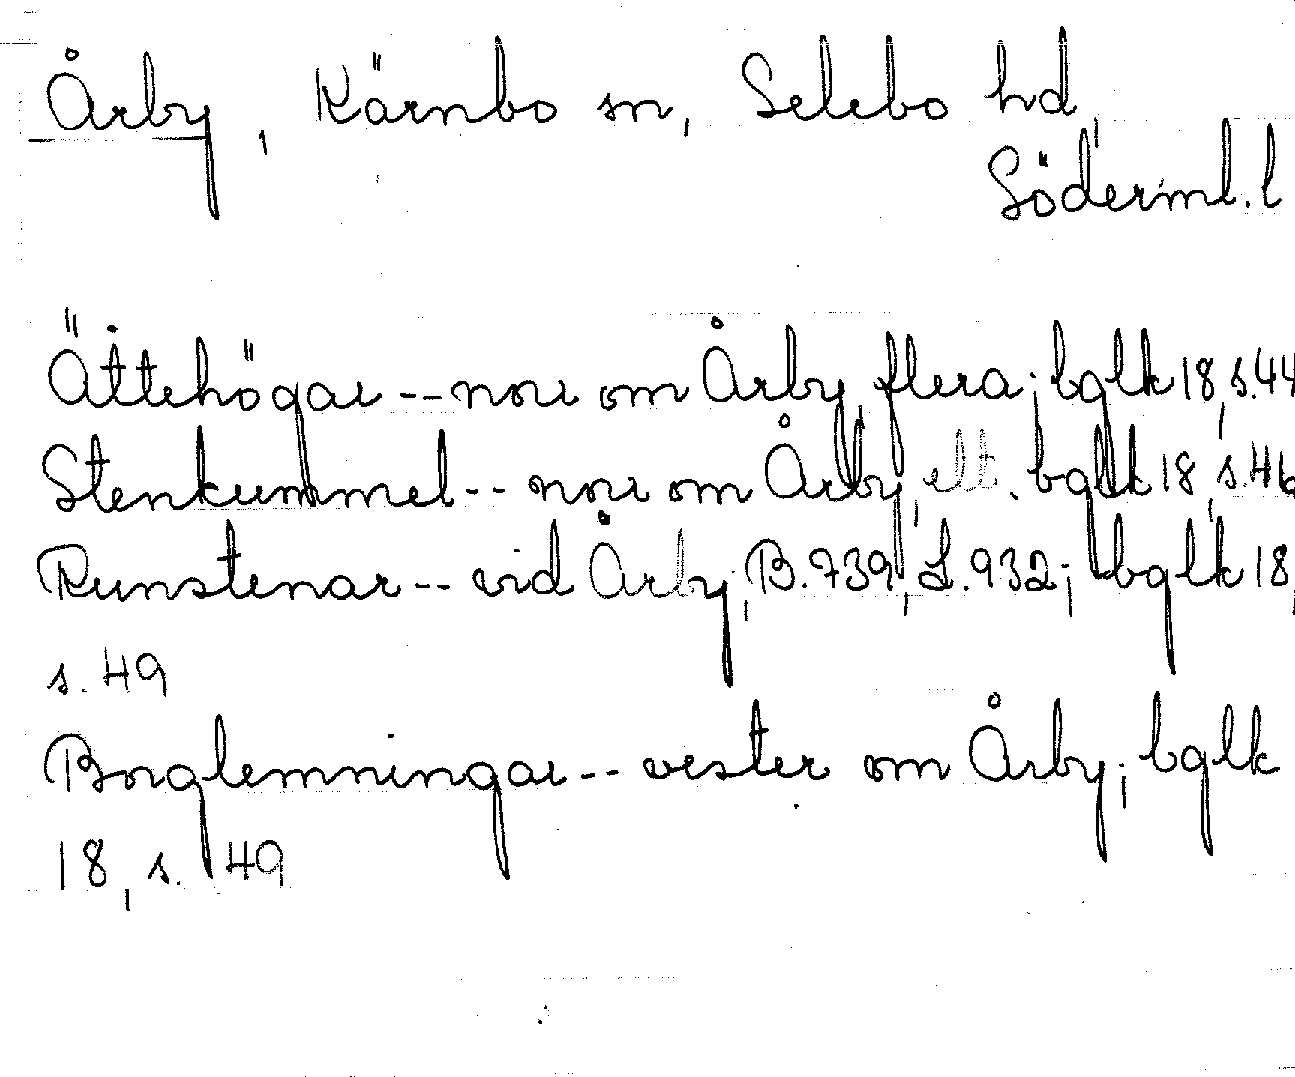 Årby, Kärnbo sn, Selebo hd,
Söderml. l
Ättehögar -- norr om Årby, flera; bglk 18, s. 44
Stenkummel -- norr om Årby, ett. bglk 18, s. 46
Runstenar -- vid Årby, B. 739, L. 932; bglk 18,
s. 49
Borglemningar -- vester om Årby; bglk
18, s. 49